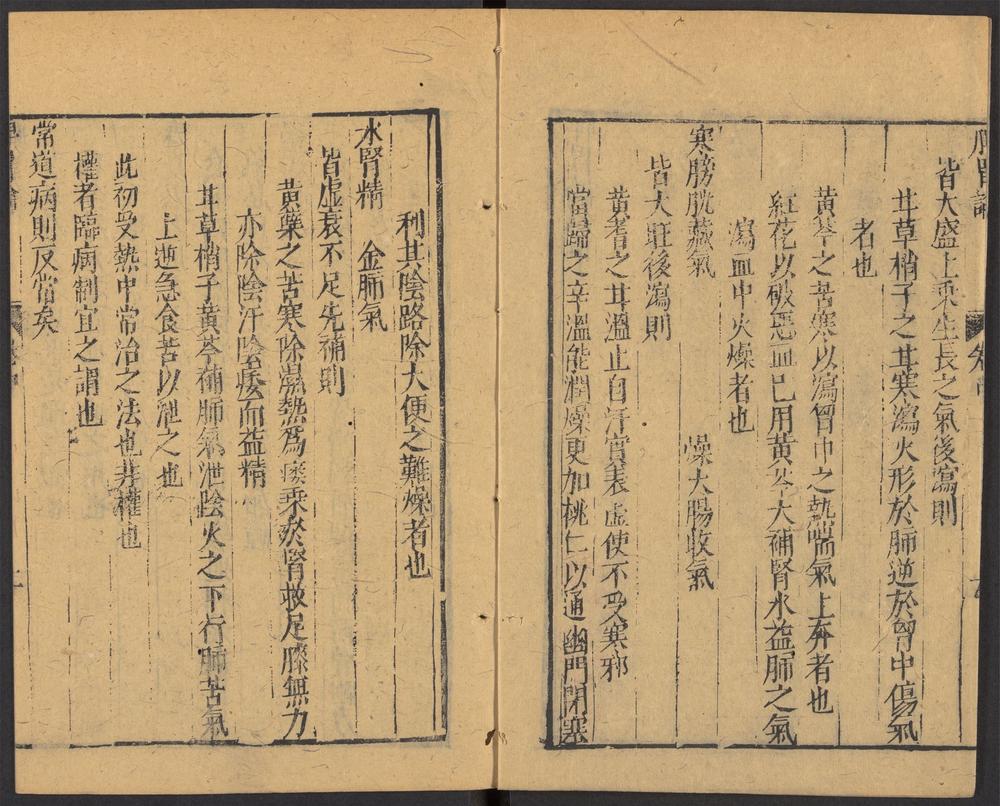 脾胃論 卷中
皆大盛上乘生長之氣後瀉則
甘草梢子之甘寒瀉火形於肺逆於胷中傷氣
者也
黃芩之苦寒以瀉胷中之熱喘氣上奔者也
紅花以破惡血已用黃芩大補腎水益肺之氣
瀉血中火燥者也
寒膀胱藏氣 燥大腸收氣
皆大旺後瀉則
黃耆之甘溫止自汗實表虛使不受寒邪
當歸之辛溫能潤燥更加桃仁以通幽門閉塞
利其陰路除大便之難燥者也
水腎精 金肺氣
皆虛衰不足先補則
黃蘗之苦寒除濕熱爲痿乘於腎救足膝無力
亦除陰汗陰痿而益精
甘草梢子黃芩補肺氣泄陰火之下行肺苦氣
上逆急食苦以泄之也
此初受熱中常治之法也非權也
權者臨病制宜之謂也
常道病則反常矣